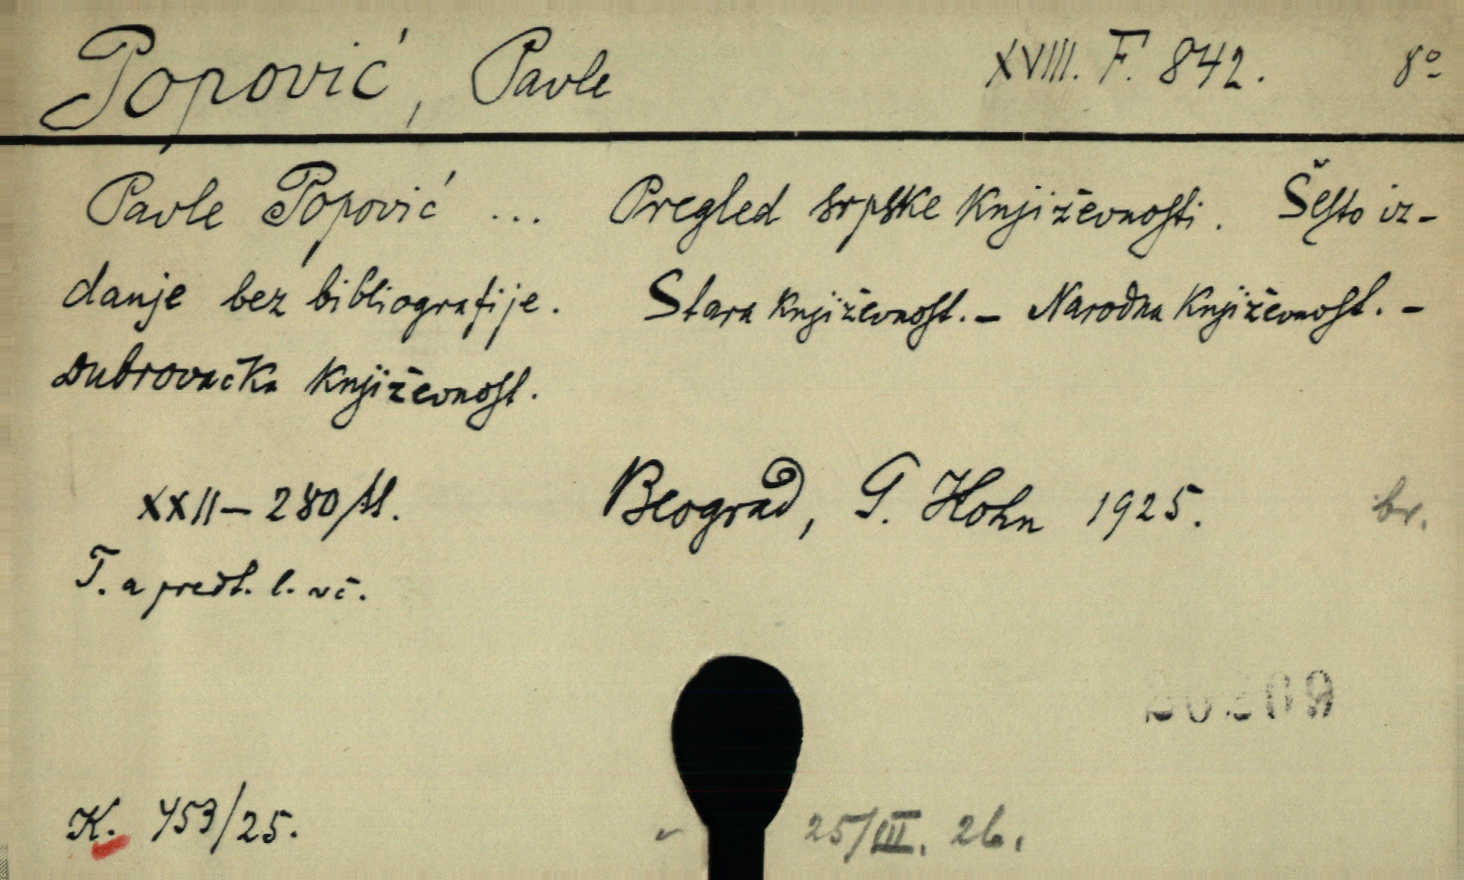 Popović, Pavle XVIII. F. 842. 8º
Pavle Popović ... Pregled srpske književnosti. Šesto iz-
danje bez bibliografije. Stara književnost. – Narodna književnost. –
Dubrovačka književnost.
XXII – 280 str. Beograd, G. Kohn 1925. br.
T. a predt. l. vč.
K. 453/25. 25/III. 26.